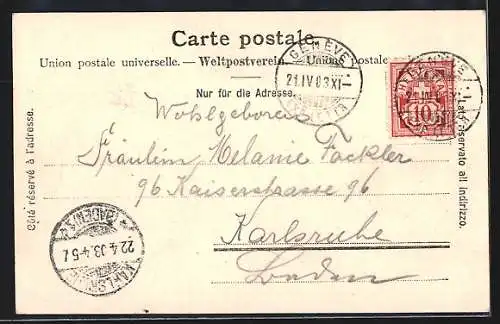 Carte postale.
Union postale universelle. — Weltpostverein. — Unione postale
Nur für die Adresse.
GENÈVE
21.IV 03 XI–
10
Côté réservé à l'adresse.
Lato riservato all' indirizzo.
Wohlgeboren
Fräulein Melanie Fackler
96 Kaiserstrasse 96
Karlsruhe
Baden
KARLSRUHE
22.4.03.4-5
(BADEN)